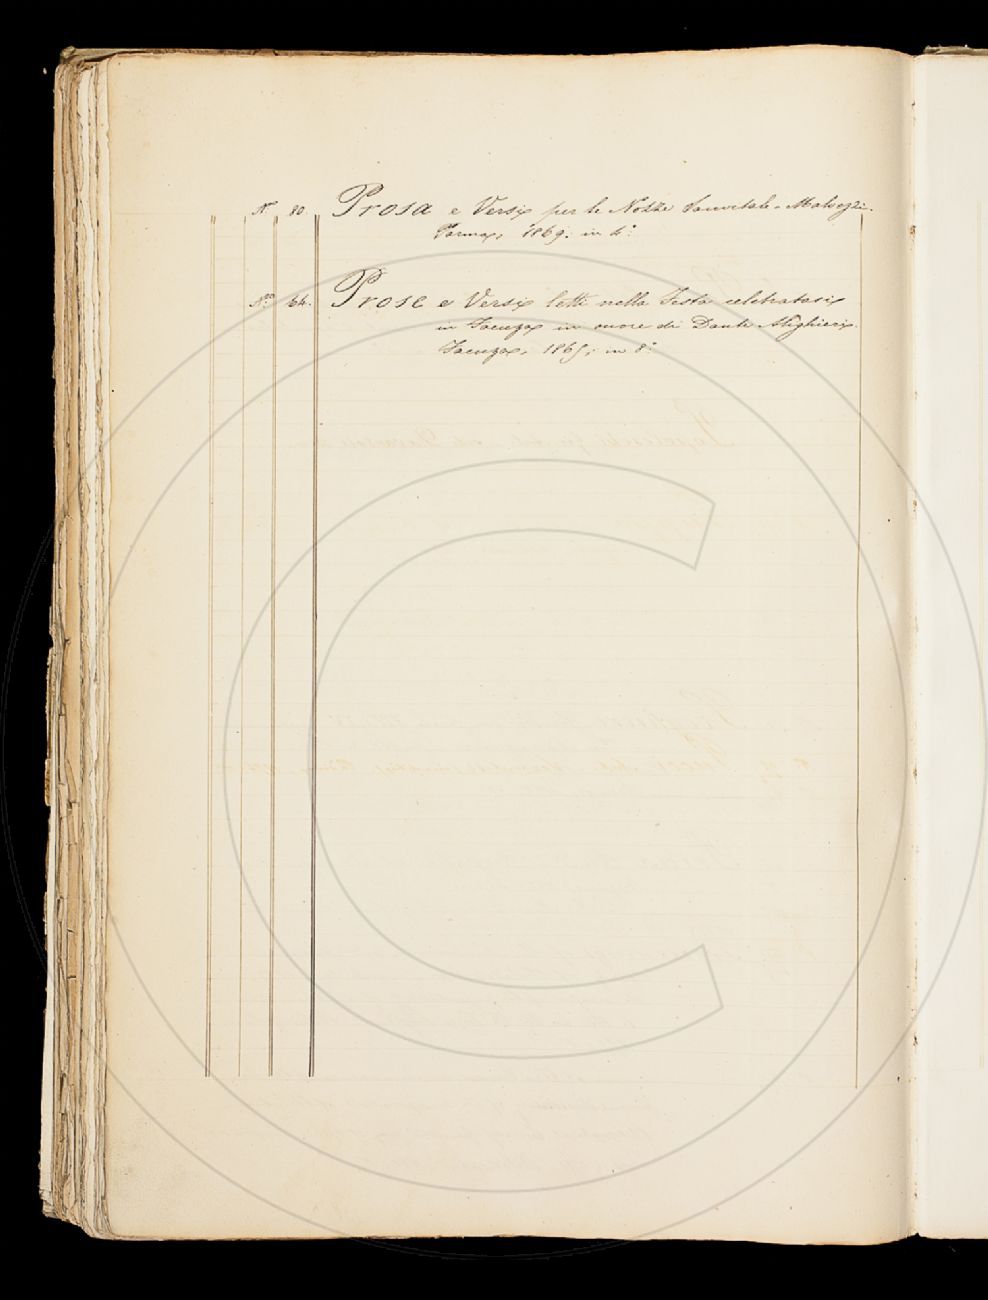 N. 80. Prosa e Versi per le Nozze Sanvitale-Malvezzi.
Parma, 1869. in 4.°
N.° 64. Prose e Versi letti nella Festa celebratasi
in Faenza in onore di Dante Alighieri.
Faenza, 1865, in 8.°